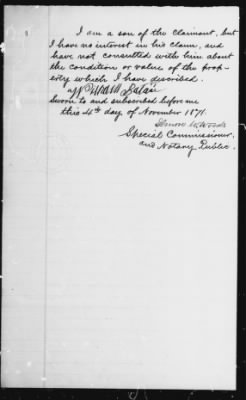 I am a son of the claimant, but
I have no interest in his claim, and
have not consulted with him about
the condition or value of the prop-
erty which I have described.
Sworn to and subscribed before me
this 4th day of November 1871.
Special Commissioner,
and Notary Public.